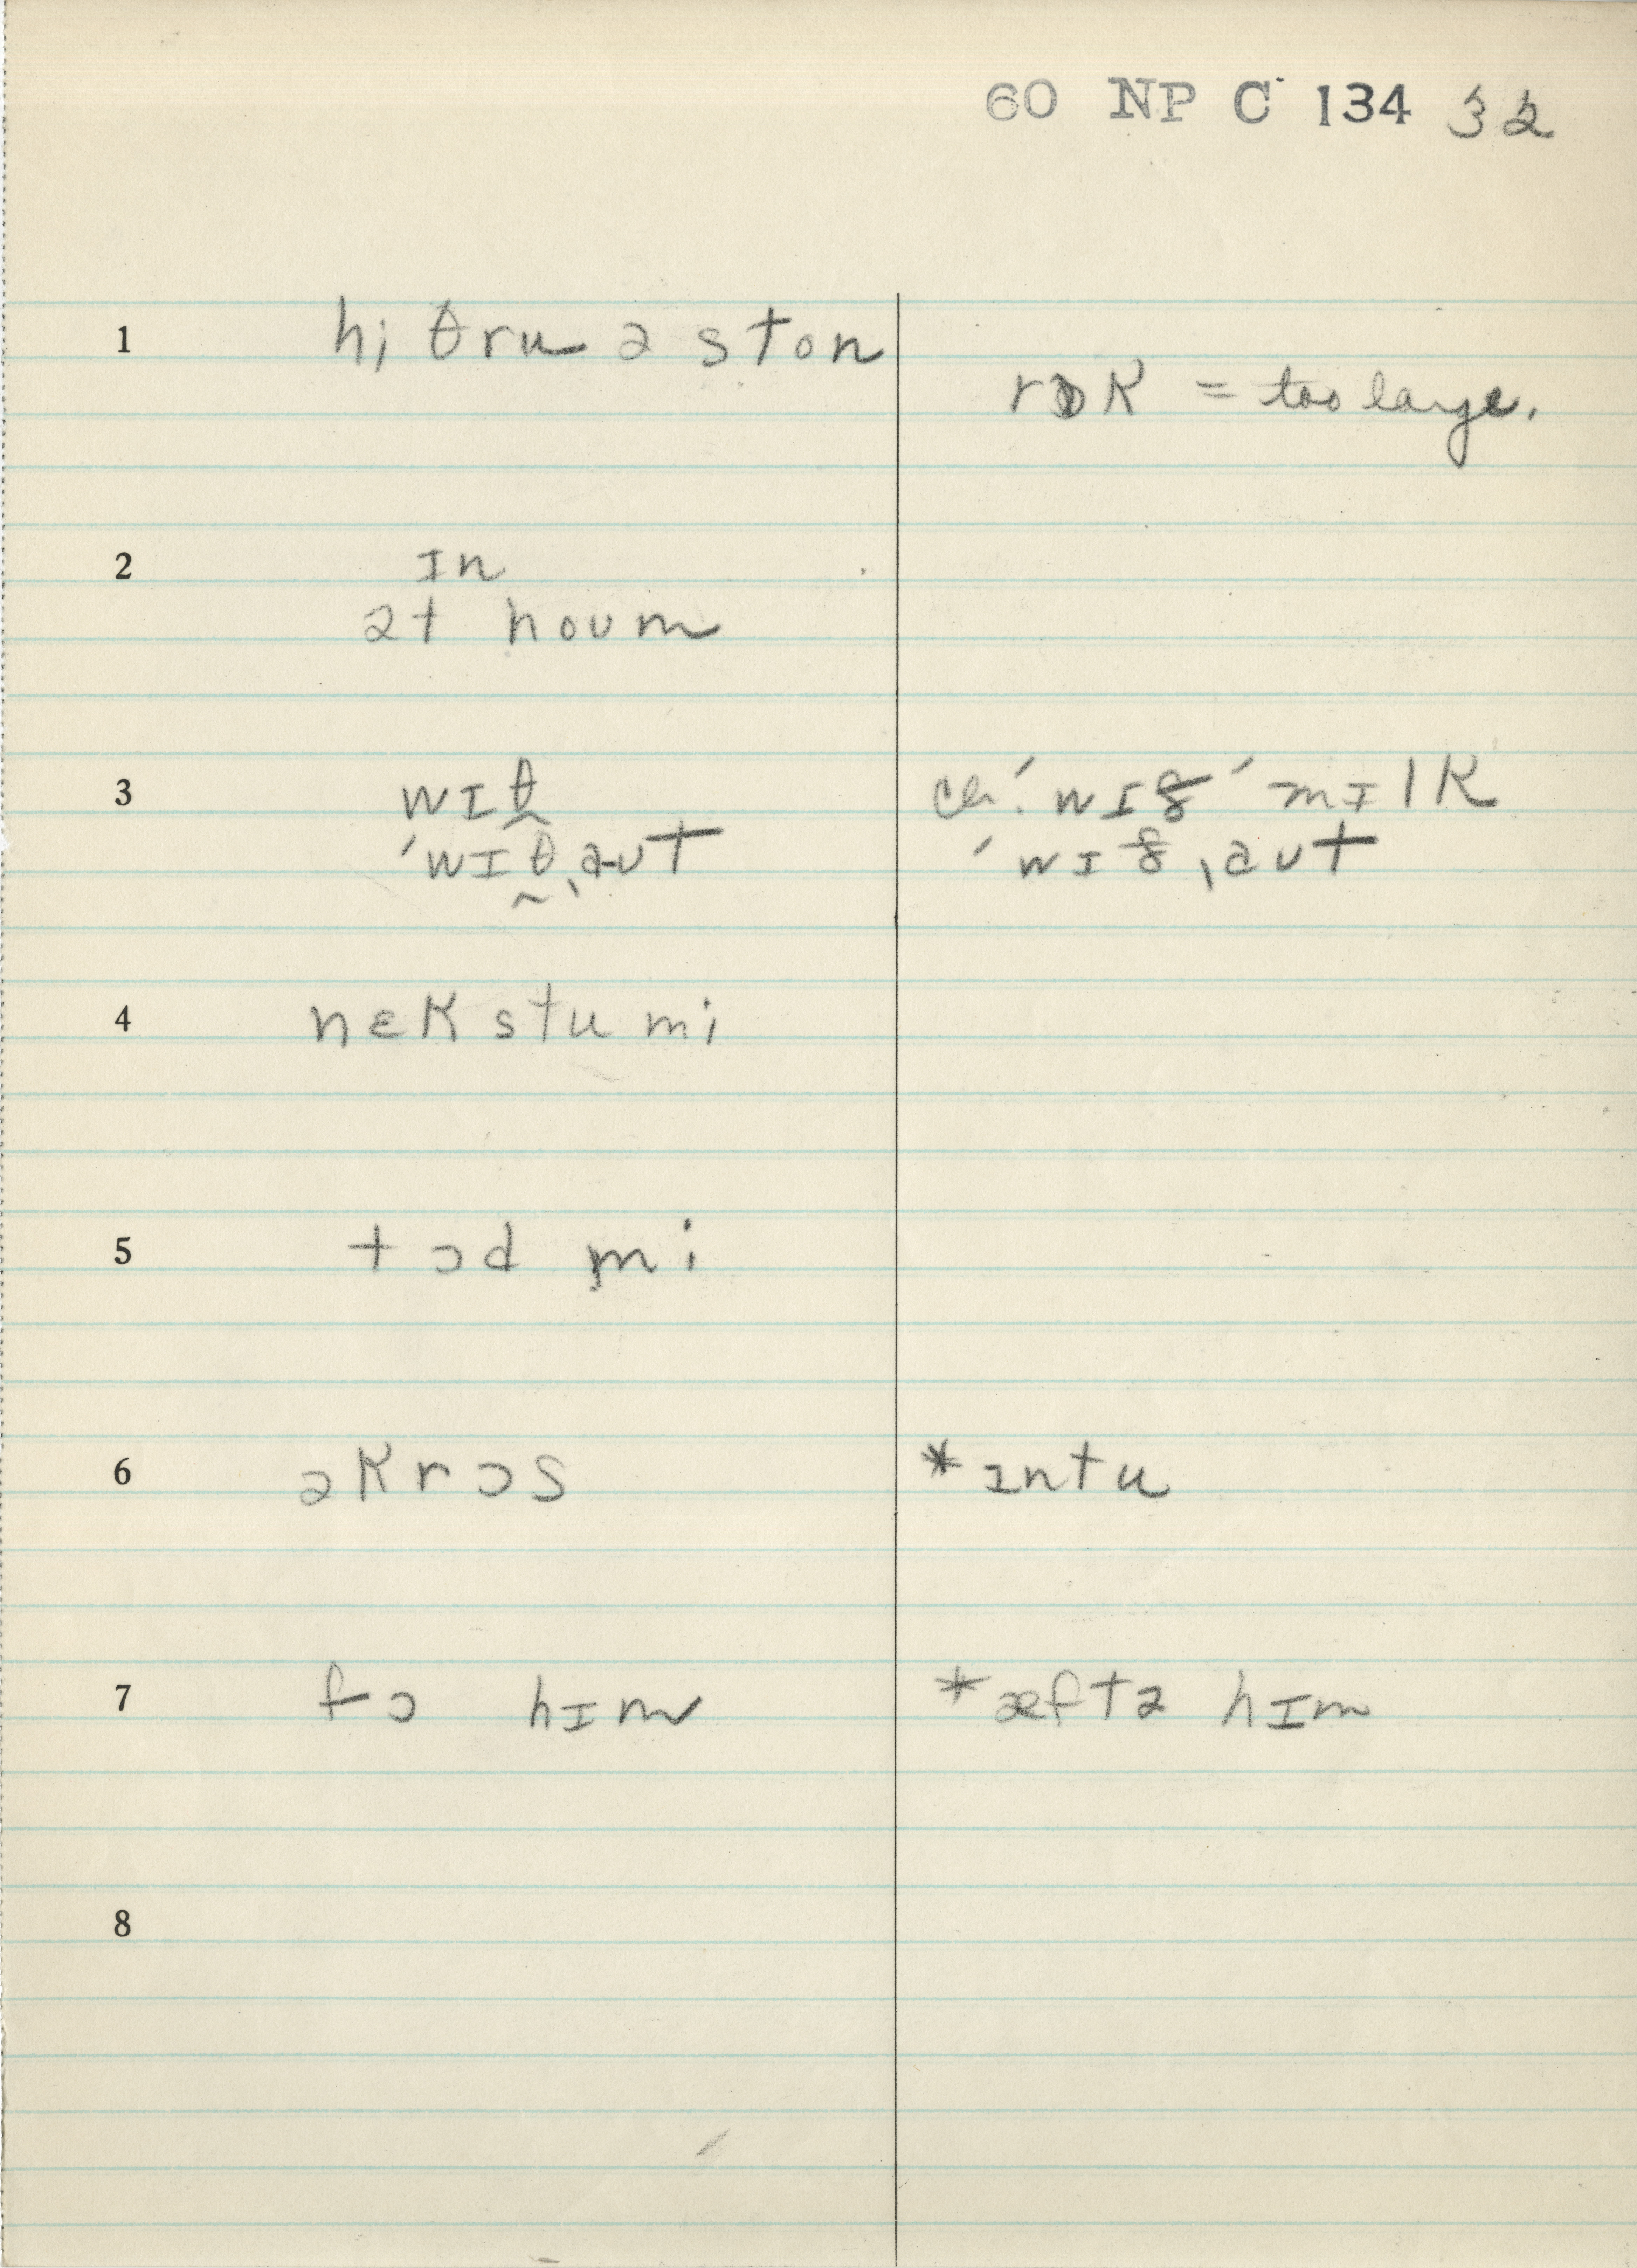 60 NP C 134 32
1 hi θru ə ston
rɒk = too large.
2 ɪn
ət houm
3 wɪθ̬ cv. ˈwɪð ˈmɪlk
ˈwɪθ̬ˌaut ˈwɪðˌaut
4 nɛkstu mi
5 tɔd mi
6 əkrɔs *ɪntu
7 fɔ hɪm *æftə hɪm
8